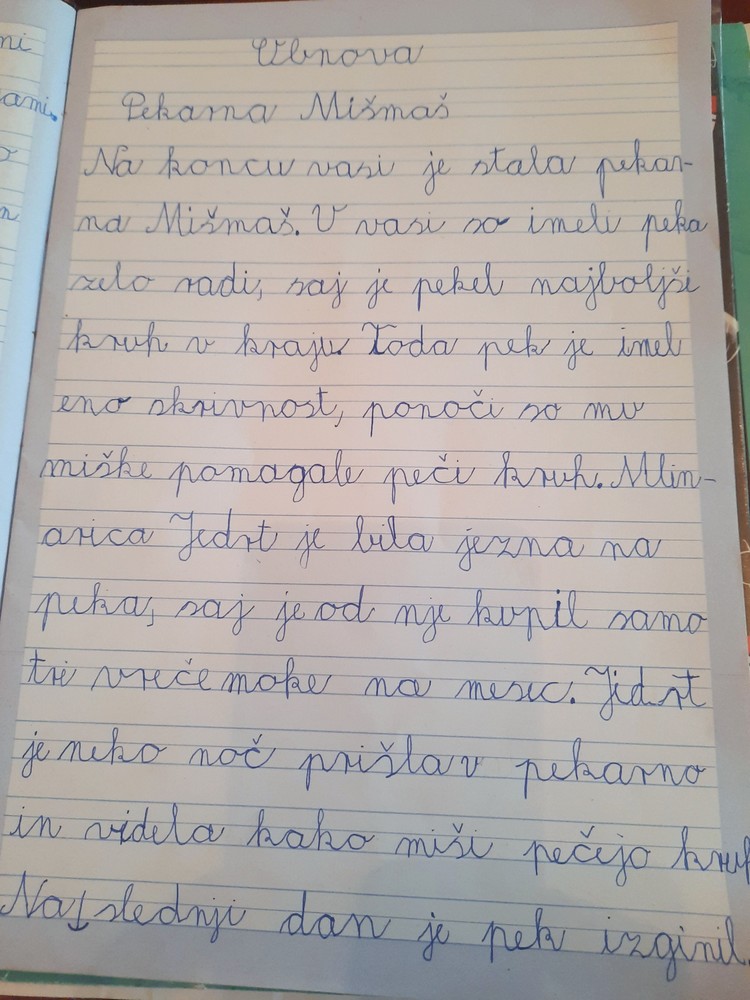 ni
ami.
n
Obnova
Pekarna Mišmaš
Na koncu vasi je stala pekar-
na Mišmaš. V vasi so imeli peka
zelo radi, saj je pekel najboljši
kruh v kraju. Toda pek je imel
eno skrivnost, ponoči so mu
miške pomagale peči kruh. Mlin-
arica Jedrt je bila jezna na
peka, saj je od nje kupil samo
tri vreče moke na mesec. Jedrt
je neko noč prišla v pekarno
in videla kako miši pečejo kruh
Naslednji dan je pek izginil.